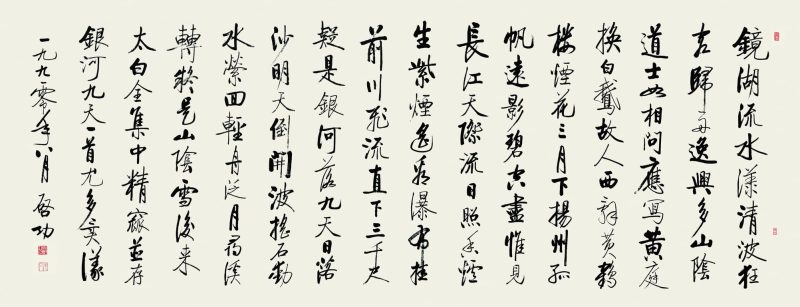 鏡湖流水漾清波狂
客歸舟逸興多山陰
道士如相問應寫黄庭
換白鵝故人西辭黄鶴
樓煙花三月下揚州孤
帆遠影碧空盡惟見
長江天際流日照香爐
生紫煙遙看瀑布挂
前川飛流直下三千尺
疑是銀河落九天日落
沙明天倒開波摇石動
水縈回輕舟泛月尋溪
轉疑是山陰雪後来
太白全集中精窳並存
銀河九天一首尤多
一九九零年八月 啓功